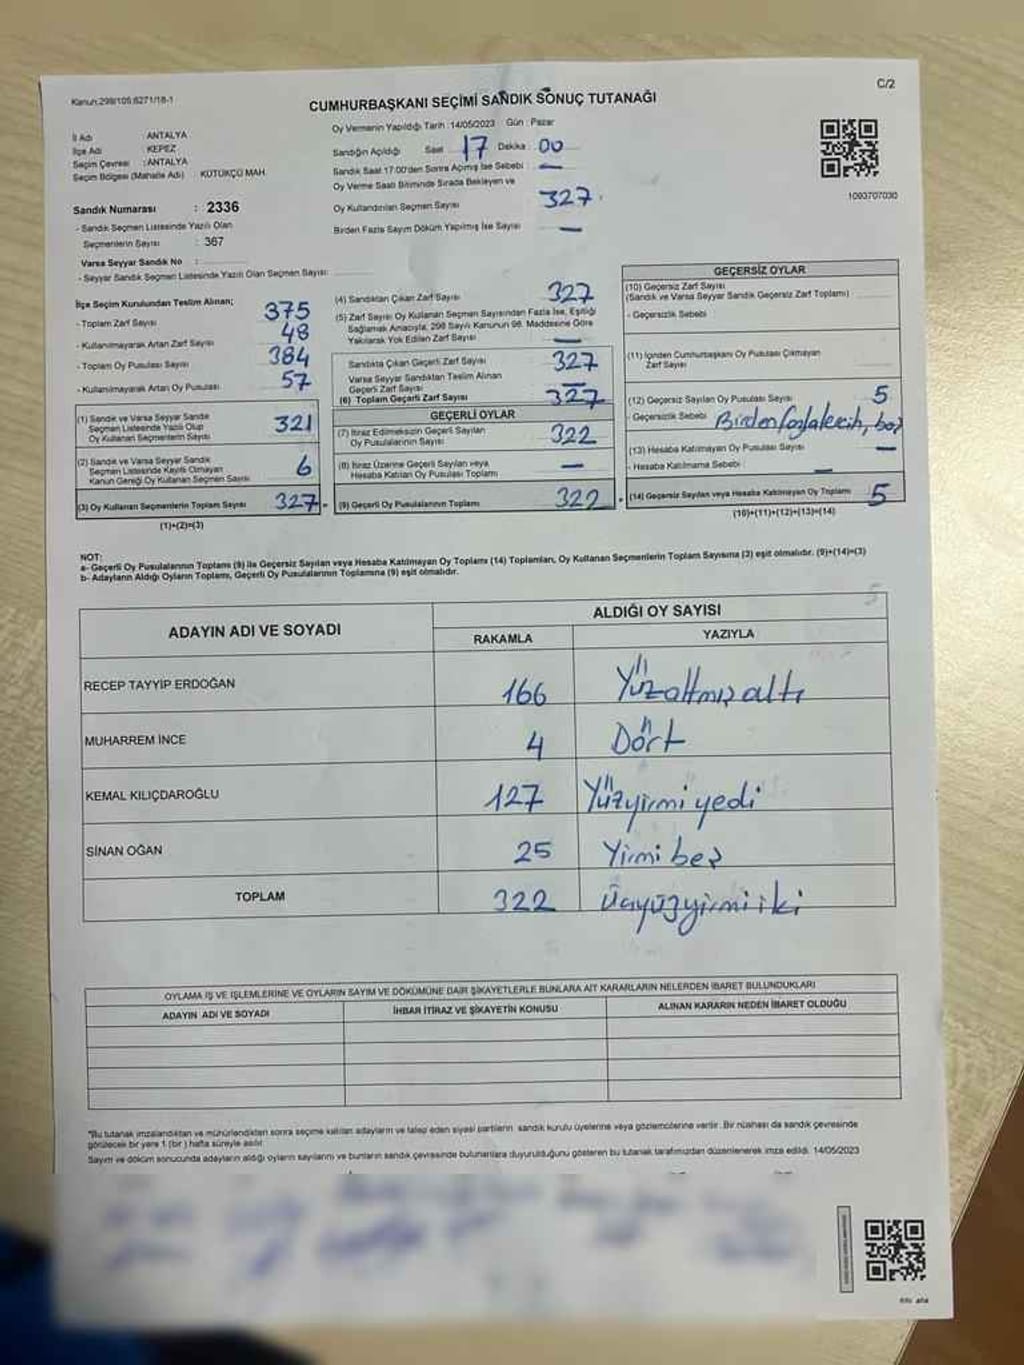 Kanun:298/105,6271/18-1
C/2
CUMHURBAŞKANI SEÇİMİ SANDIK SONUÇ TUTANAĞI
İl Adı : ANTALYA
İlçe Adı : KEPEZ
Seçim Çevresi : ANTALYA
Seçim Bölgesi (Mahalle Adı) KÜTÜKÇÜ MAH.
Sandık Numarası : 2336
- Sandık Seçmen Listesinde Yazılı Olan
Seçmenlerin Sayısı : 367
Varsa Seyyar Sandık No :
- Seyyar Sandık Seçmen Listesinde Yazılı Olan Seçmen Sayısı:
Oy Vermenin Yapıldığı Tarih :14/05/2023 Gün : Pazar
Sandığın Açıldığı Saat 17 Dakika : 00
Sandık Saat 17.00'den Sonra Açımış İse Sebebi : —
Oy Verme Saati Bitiminde Sırada Bekleyen ve
Oy Kullandırılan Seçmen Sayısı 327
Birden Fazla Sayım Döküm Yapılmış İse Sayısı —
1093707030
İlçe Seçim Kurulundan Teslim Alınan;
- Toplam Zarf Sayısı 375
- Kullanılmayarak Artan Zarf Sayısı 48
- Toplam Oy Pusulası Sayısı 384
- Kullanılmayarak Artan Oy Pusulası 57
(1) Sandık ve Varsa Seyyar Sandık
Seçmen Listesinde Yazılı Olup
Oy Kullanan Seçmenlerin Sayısı 321
(2) Sandık ve Varsa Seyyar Sandık
Seçmen Listesinde Kayıtlı Olmayan
Kanun Gereği Oy Kullanan Seçmen Sayısı 6
(3) Oy Kullanan Seçmenlerin Toplam Sayısı 327
(1)+(2)=(3)
(4) Sandıktan Çıkan Zarf Sayısı 327
(5) Zarf Sayısı Oy Kullanan Seçmen Sayısından Fazla İse, Eşitliği
Sağlamak Amacıyla, 298 Sayılı Kanunun 98. Maddesine Göre
Yakılarak Yok Edilen Zarf Sayısı —
Sandıkta Çıkan Geçerli Zarf Sayısı 327
Varsa Seyyar Sandıktan Teslim Alınan
Geçerli Zarf Sayısı —
(6) Toplam Geçerli Zarf Sayısı 327
GEÇERLİ OYLAR
(7) İtiraz Edilmeksizin Geçerli Sayılan
Oy Pusulalarının Sayısı 322
(8) İtiraz Üzerine Geçerli Sayılan veya
Hesaba Katılan Oy Pusulası Toplamı —
(9) Geçerli Oy Pusulalarının Toplamı 322
GEÇERSİZ OYLAR
(10) Geçersiz Zarf Sayısı
(Sandık ve Varsa Seyyar Sandık Geçersiz Zarf Toplamı)
- Geçersizlik Sebebi
(11) İçinden Cumhurbaşkanı Oy Pusulası Çıkmayan
Zarf Sayısı
(12) Geçersiz Sayılan Oy Pusulası Sayısı 5
- Geçersizlik Sebebi Birden fazla tercih, boş
(13) Hesaba Katılmayan Oy Pusulası Sayısı —
- Hesaba Katılmama Sebebi : —
(14) Geçersiz Sayılan veya Hesaba Katılmayan Oy Toplamı 5
(10)+(11)+(12)+(13)=(14)
NOT:
a- Geçerli Oy Pusulalarının Toplamı (9) ile Geçersiz Sayılan veya Hesaba Katılmayan Oy Toplamı (14) Toplamları, Oy Kullanan Seçmenlerin Toplam Sayısına (3) eşit olmalıdır. (9)+(14)=(3)
b- Adayların Aldığı Oyların Toplamı, Geçerli Oy Pusulalarının Toplamına (9) eşit olmalıdır.
5
ADAYIN ADI VE SOYADI
ALDIĞI OY SAYISI
RAKAMLA YAZIYLA
RECEP TAYYİP ERDOĞAN 166 Yüzaltmış altı
MUHARREM İNCE 4 Dört
KEMAL KILIÇDAROĞLU 127 Yüzyirmi yedi
SİNAN OĞAN 25 Yirmi beş
TOPLAM 322 üçyüzyirmi iki
OYLAMA İŞ VE İŞLEMLERİNE VE OYLARIN SAYIM VE DÖKÜMÜNE DAİR ŞİKAYETLERLE BUNLARA AİT KARARLARIN NELERDEN İBARET BULUNDUKLARI
ADAYIN ADI VE SOYADI İHBAR İTİRAZ VE ŞİKAYETİN KONUSU ALINAN KARARIN NEDEN İBARET OLDUĞU
*Bu tutanak imzalandıktan ve mühürlendikten sonra seçime katılan adayların ve talep eden siyasi partilerin sandık kurulu üyelerine veya gözlemcilerine verilir. Bir nüshası da sandık çevresinde
görülecek bir yere 1 (bir) hafta süreyle asılır.
Sayım ve döküm sonucunda adayların aldığı oyların sayılarını ve bunların sandık çevresinde bulunanlara duyurulduğunu gösteren bu tutanak tarafımızdan düzenlenerek imza edildi. 14/05/2023